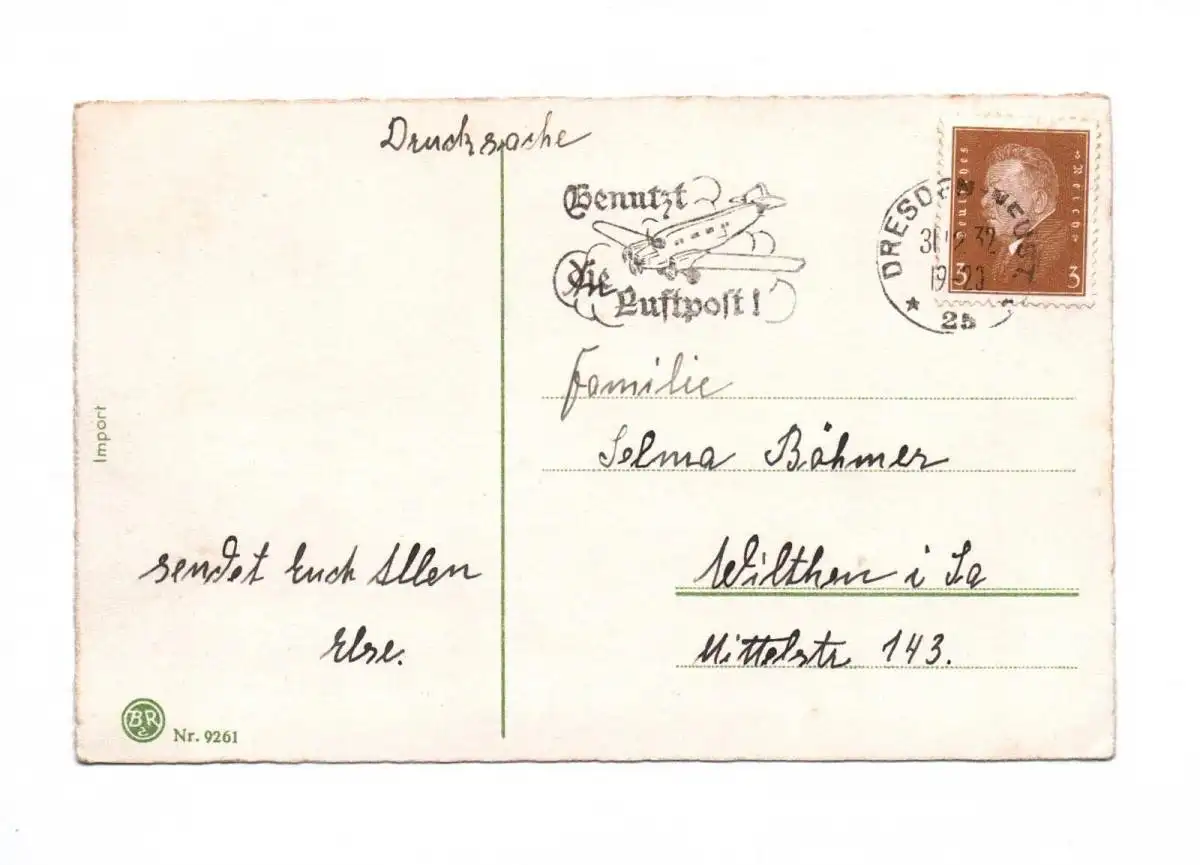 Drucksache
Benutzt
die
Luftpost!
DRESDEN-NEUST.
19-20
25
Deutsches
Reich
3 3
Familie
Selma Böhmer
Wilthen i Sa
Mittelstr 143.
sendet Euch Allen
Else.
Import
BR
Nr. 9261